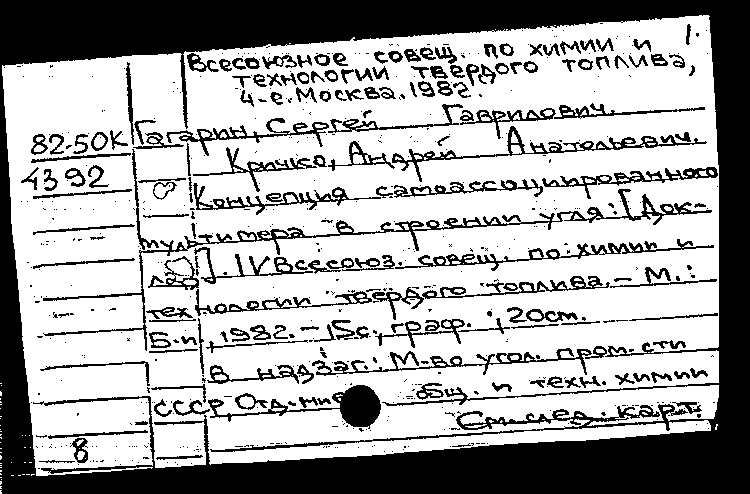 1.
Всесоюзное совещ. по химии и
технологии твердого топлива,
4-е. Москва. 1982.
82-50К Гагарин, Сергей Гаврилович.
4392 Кричко, Андрей Анатольевич.
Концепция самоассоциированного
мультимера в строении угля: [Док-
лад]. IV Всесоюз. совещ. по химии и
технологии твердого топлива. - М.:
Б.и., 1982. - 15с., граф.; 20см.
В надзаг.: М-во угол. пром-сти
СССР, Отд-ние общ. и техн. химии
См. след. карт.
8